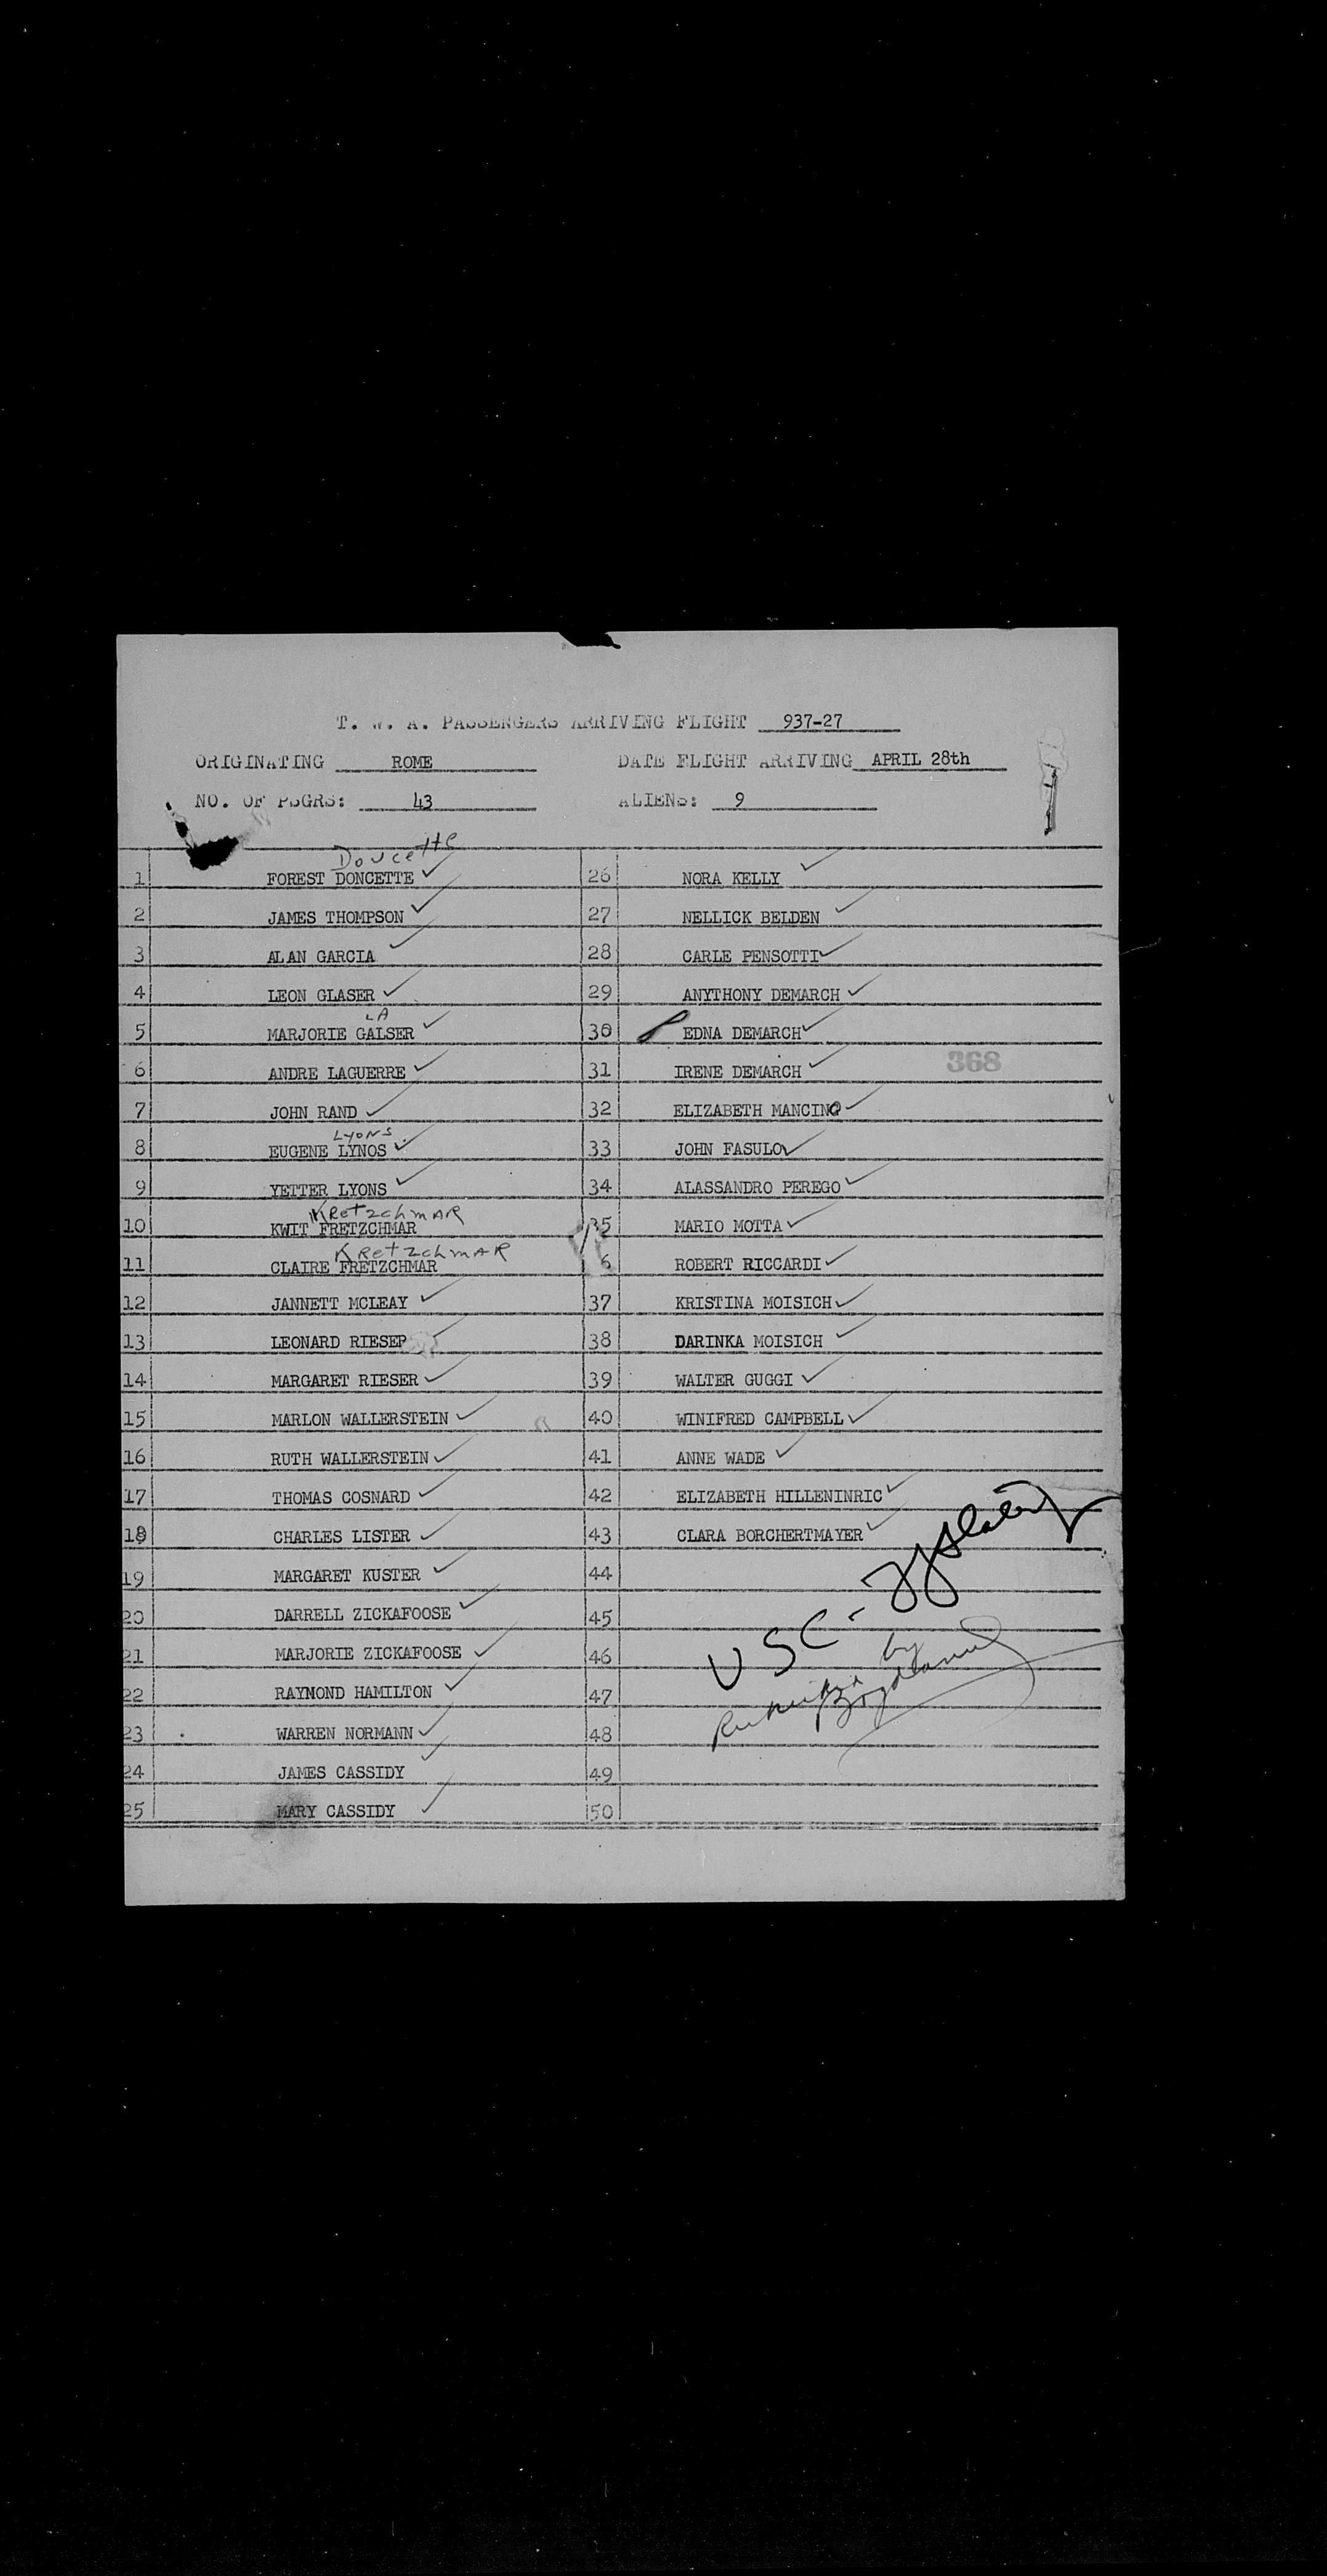 T. W. A. PASSENGERS ARRIVING FLIGHT 937-27
ORIGINATING ROME DATE FLIGHT ARRIVING APRIL 28th
NO. OF PSGRS: 43 ALIENS: 9
Doucette
1 FOREST DONCETTE ✓
2 JAMES THOMPSON ✓
3 ALAN GARCIA ✓
4 LEON GLASER ✓
LA
5 MARJORIE GALSER ✓
6 ANDRE LAGUERRE ✓
7 JOHN RAND ✓
Lyons
8 EUGENE LYNOS ✓
9 YETTER LYONS ✓
KRetzchmAR
10 KWIT FRETZCHMAR
KRetzchmAR
11 CLAIRE FRETZCHMAR
12 JANNETT MCLEAY ✓
13 LEONARD RIESER ✓
14 MARGARET RIESER ✓
15 MARLON WALLERSTEIN ✓
16 RUTH WALLERSTEIN ✓
17 THOMAS COSNARD ✓
18 CHARLES LISTER ✓
19 MARGARET KUSTER ✓
20 DARRELL ZICKAFOOSE ✓
21 MARJORIE ZICKAFOOSE ✓
22 RAYMOND HAMILTON ✓
23 WARREN NORMANN ✓
24 JAMES CASSIDY ✓
25 MARY CASSIDY ✓
26 NORA KELLY ✓
27 NELLICK BELDEN ✓
28 CARLE PENSOTTI ✓
29 ANYTHONY DEMARCH ✓
30 EDNA DEMARCH ✓
31 IRENE DEMARCH ✓
368
32 ELIZABETH MANCINO ✓
33 JOHN FASULO ✓
34 ALASSANDRO PEREGO ✓
35 MARIO MOTTA ✓
6 ROBERT RICCARDI ✓
37 KRISTINA MOISICH ✓
38 DARINKA MOISICH ✓
39 WALTER GUGGI ✓
40 WINIFRED CAMPBELL ✓
41 ANNE WADE ✓
42 ELIZABETH HILLENINRIC ✓
43 CLARA BORCHERTMAYER ✓
44
45
46
47
48
49
50
USC -
by